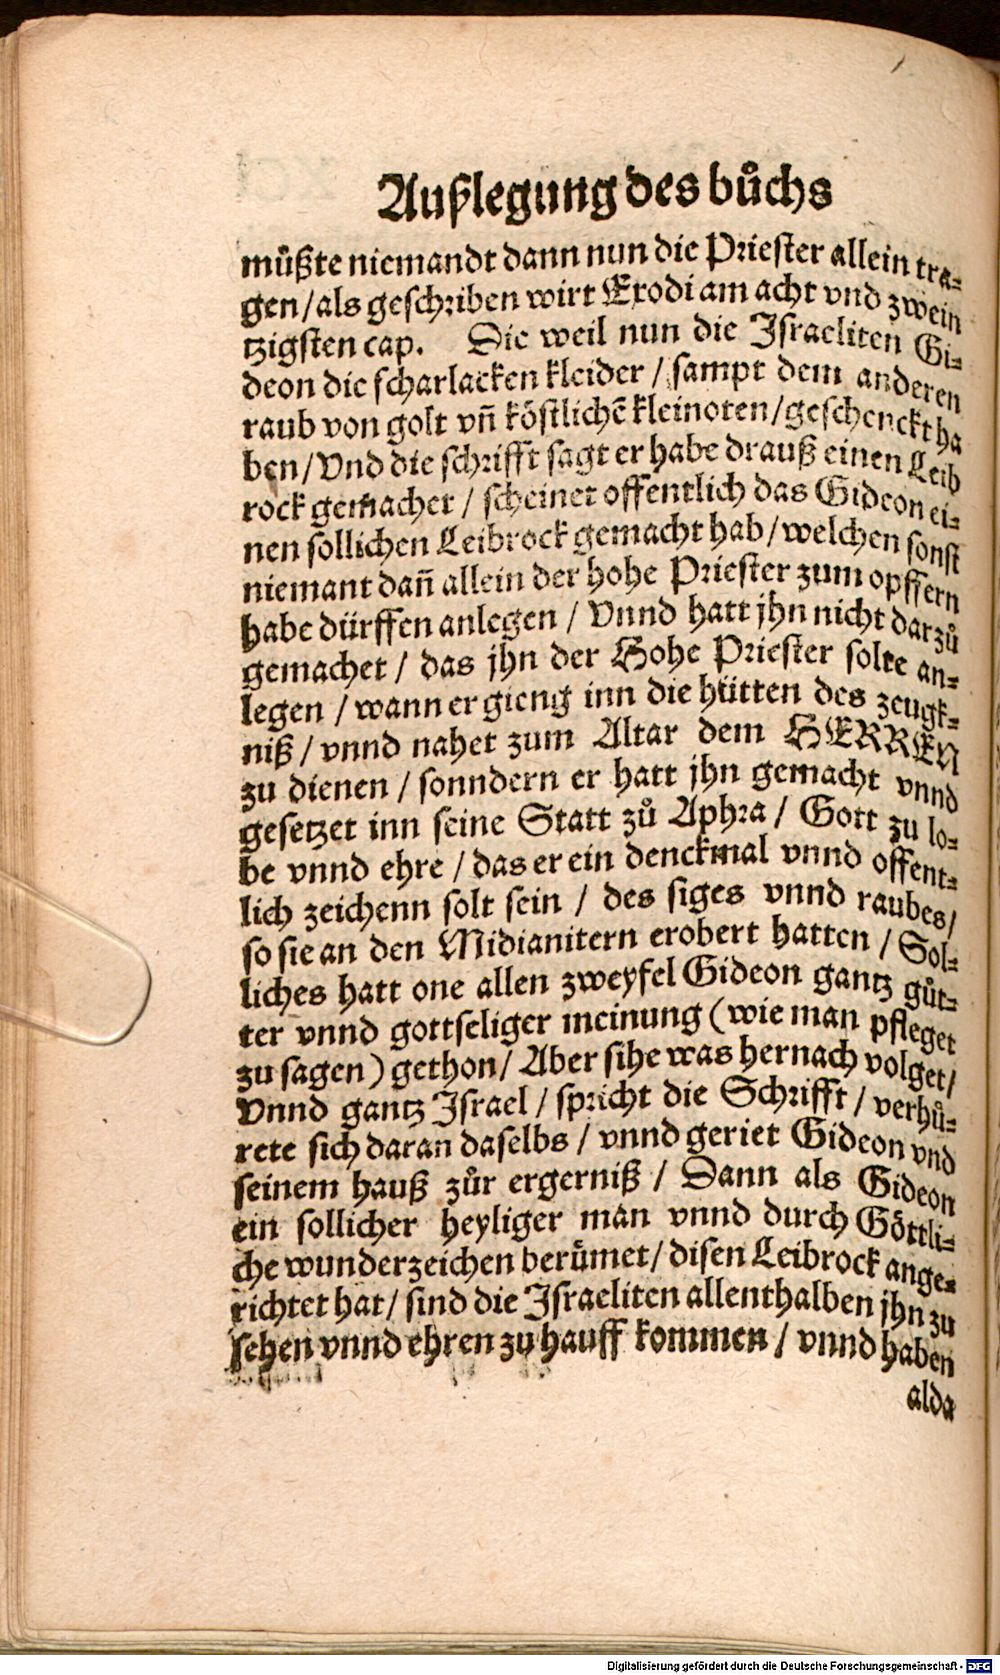 Außlegung des bůchs
müßte niemandt dann nun die Priester allein tra-
gen/als geschriben wirt Exodi am acht vnd zwein
tzigsten cap. Die weil nun die Israeliten Gi-
deon die scharlacken kleider / sampt dem anderen
raub von golt vñ köstlichẽ kleinoten/geschenckt ha
ben/Vnd die schrifft sagt er habe drauß einen Leib
rock gemachet / scheinet offentlich das Gideon ei-
nen sollichen Leibrock gemacht hab/welchen sonst
niemant dañ allein der hohe Priester zum opffern
habe dürffen anlegen / Vnnd hatt jhn nicht darzů
gemachet / das jhn der Hohe Priester solte an-
legen / wann er gieng inn die hütten des zeugk-
niß / vnnd nahet zum Altar dem HERREN
zu dienen / sonndern er hatt jhn gemacht vnnd
gesetzet inn seine Statt zů Aphra / Gott zu lo-
be vnnd ehre / das er ein denckmal vnnd offent-
lich zeichenn solt sein / des siges vnnd raubes/
so sie an den Midianitern erobert hatten / Sol-
liches hatt one allen zweyfel Gideon gantz gůt-
ter vnnd gottseliger meinung (wie man pfleget
zu sagen) gethon/ Aber sihe was hernach volget/
Vnnd gantz Israel / spricht die Schrifft / verhů-
rete sich daran daselbs / vnnd geriet Gideon vnd
seinem hauß zůr ergerniß / Dann als Gideon
ein sollicher heyliger man vnnd durch Göttli-
che wunderzeichen berůmet/ disen Leibrock ange-
richtet hat/ sind die Israeliten allenthalben jhn zu
sehen vnnd ehren zu hauff kommen / vnnd haben
alda
Digitalisierung gefördert durch die Deutsche Forschungsgemeinschaft - DFG